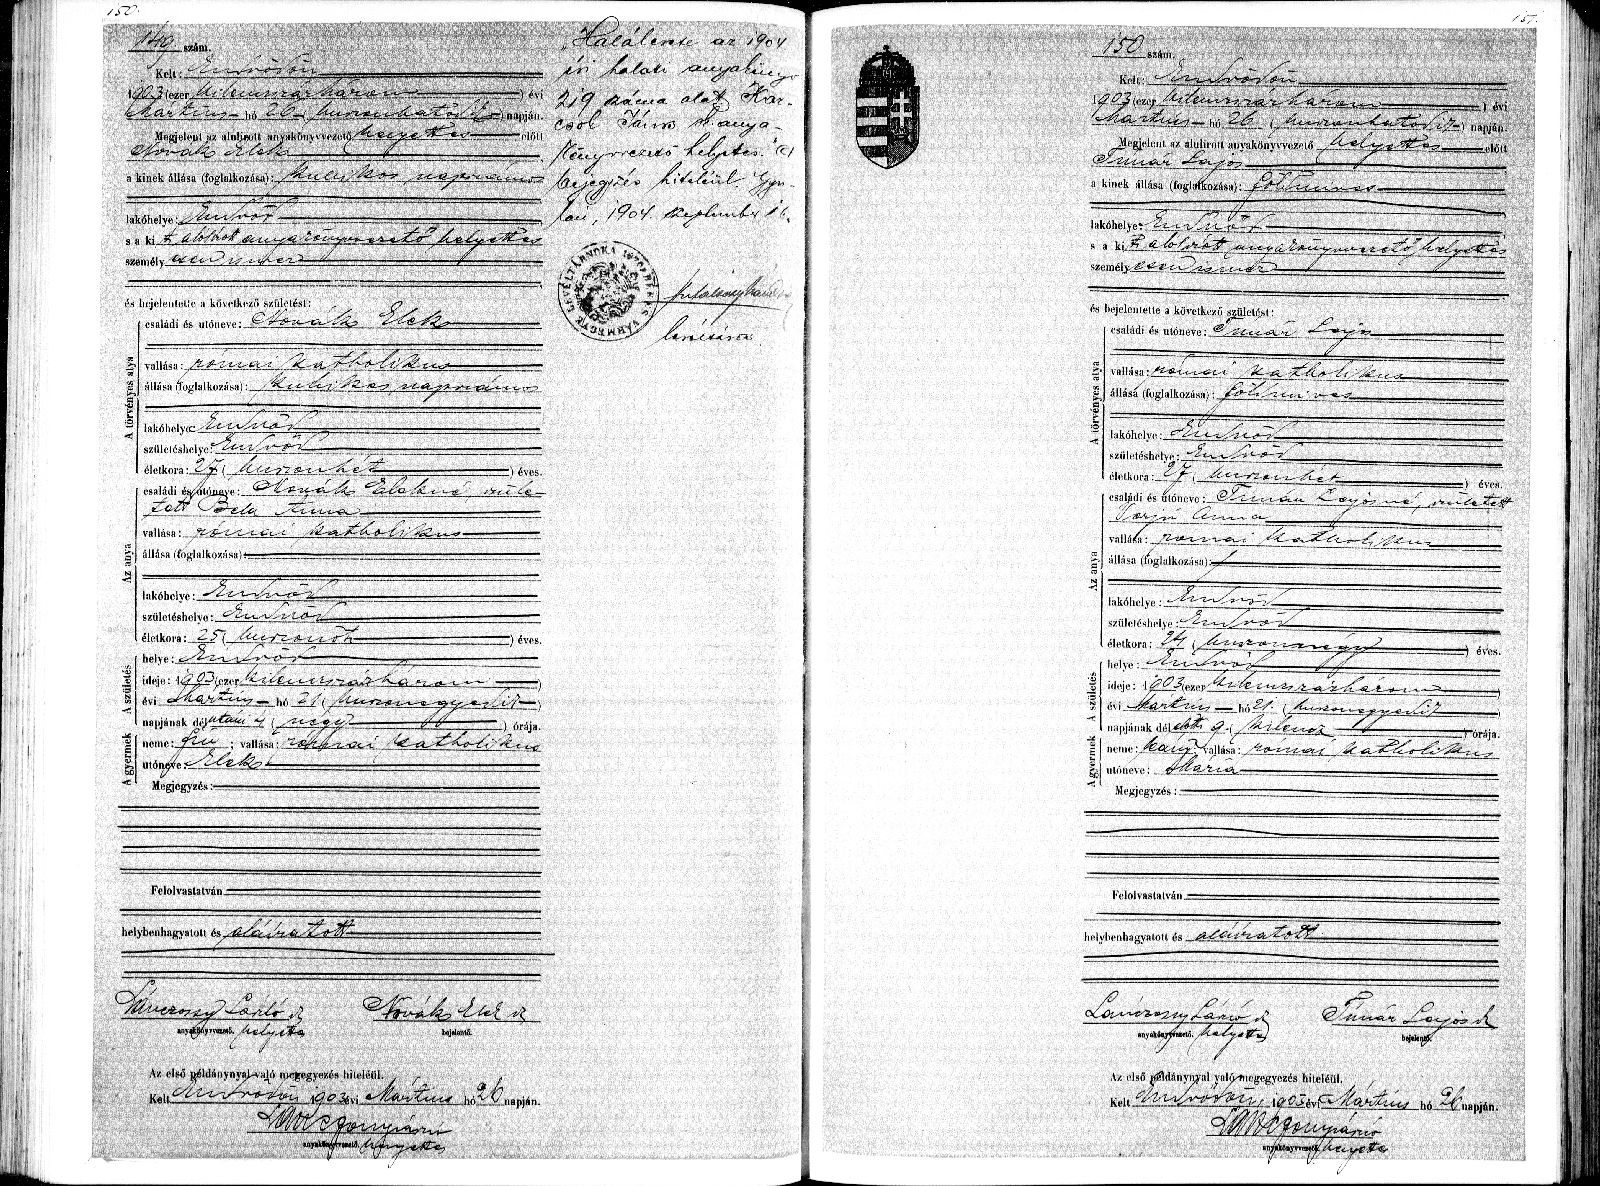 150.
149 szám.
Kelt: Endrődön
1903 (ezer kilenczszázhárom) évi
Mártius hó 26 (huszonhatodik) napján.
Megjelent az alulirott anyakönyvvezető helyettes előtt
Novák Elek
a kinek állása (foglalkozása): kubikos, napszámos
lakóhelye: Endrőd
s a kit alólirott anyakönyvvezető helyettes
személyesen ismer
és bejelentette a következő születést:
A törvényes atya
családi és utóneve: Novák Elek
vallása: római katholikus
állása (foglalkozása): kubikos, napszámos
lakóhelye: Endrőd
születéshelye: Endrőd
életkora: 27 (huszonhét) éves.
Az anya
családi és utóneve: Novák Elekné, szüle-
tett Bela Anna
vallása: római katholikus
állása (foglalkozása):
lakóhelye: Endrőd
születéshelye: Endrőd
életkora: 25 (huszonöt) éves.
A születés
helye: Endrőd
ideje: 1903 (ezer kilenczszázhárom)
évi Mártius hó 21 (huszonegyedik)
napjának délutáni 4 (négy) órája.
A gyermek
neme: fiú; vallása: római katholikus
utóneve: Elek
Megjegyzés:
Felolvastatván
helybenhagyatott és aláiratott
László Novák Elek
anyakönyvvezető. helyettes bejelentő.
Az első példánynyal való megegyezés hiteléül.
Kelt Endrődön, 1903 évi Mártius hó 26 napján.
anyakönyvvezető. helyettes
„Halálesete az 1904
évi halotti anyakönyv
219 száma alatt Kar-
csol János s. k. anya-
könyvvezető helyettes." (E)
bejegyzés hiteléül. Gyu-
lán, 1904. szeptember 16.
levéltárnok
151.
150 szám.
Kelt: Endrődön
1903 (ezer kilenczszázhárom) évi
Mártius hó 26 (huszonhatodik) napján.
Megjelent az alulirott anyakönyvvezető helyettes előtt
Timár Lajos
a kinek állása (foglalkozása): földmives
lakóhelye: Endrőd
s a kit alólirott anyakönyvvezető helyettes
személyesen ismer
és bejelentette a következő születést:
A törvényes atya
családi és utóneve: Timár Lajos
vallása: római katholikus
állása (foglalkozása): földmives
lakóhelye: Endrőd
születéshelye: Endrőd
életkora: 27 (huszonhét) éves.
Az anya
családi és utóneve: Timár Lajosné, született
Varjú Anna
vallása: római katholikus
állása (foglalkozása):
lakóhelye: Endrőd
születéshelye: Endrőd
életkora: 24 (huszonnégy) éves.
A születés
helye: Endrőd
ideje: 1903 (ezer kilenczszázhárom)
évi Mártius hó 21. (huszonegyedik)
napjának délelőtti 9. (kilencz) órája.
A gyermek
neme: leány vallása: római katholikus
utóneve: Mária
Megjegyzés:
Felolvastatván
helybenhagyatott és aláiratott
Timár Lajos
anyakönyvvezető. helyettes bejelentő.
Az első példánynyal való megegyezés hiteléül.
Kelt Endrődön, 1903 évi Mártius hó 26 napján.
anyakönyvvezető. helyettes